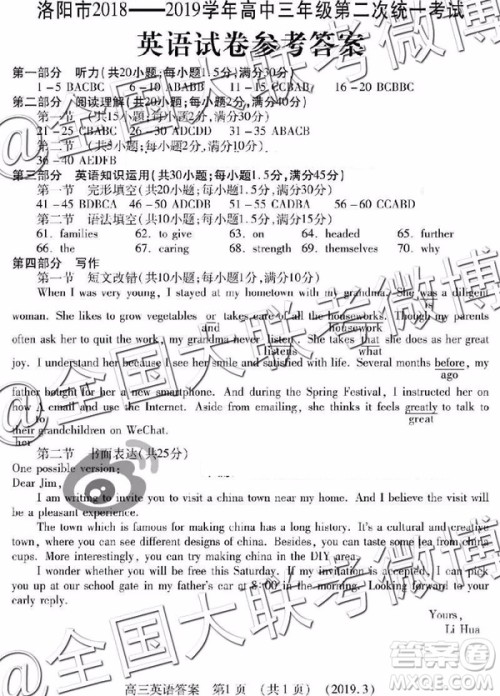 洛阳市2018——2019学年高中三年级第二次统一考试
英语试卷参考答案
第一部分 听力(共20小题;每小题1.5分,满分30分)
1-5 BACBC 6-10 ABABB 11-15 CCBAB 16-20 BCBBC
第二部分 阅读理解(共20小题;每小题2分,满分40分)
第一节 (共15小题;每小题2分,满分30分)
21-25 CBABC 26-30 ADCDD 31-35 ABACB
第二节 (共5小题;每小题2分,满分10分)
36-40 AEDFB
第三部分 英语知识运用(共30小题;每小题1.5分,满分45分)
第一节 完形填空(共20小题;每小题1.5分,满分30分)
41-45 BDBCA 46-50 ADCDD 51-55 CADBA 56-60 CCABD
第二节 语法填空(共10小题;每小题1.5分,满分15分)
61. families 62. to give 63. on 64. headed 65. further
66. the 67. caring 68. strength 69. themselves 70. why
第四部分 写作
第一节 短文改错(共10小题;每小题1分,满分10分)
When I was very young, I stayed at my hometown with my grandma. She was a diligent
is
woman. She likes to grow vegetables or takes care of all the houseworks. Though my parents
and housework
often ask her to quit the work, my grandma never listen. She takes that she does as her great
listens what
joy. I understand her because I see her smile and satisfied with life. Several months before, my
father bought for her a new smartphone. And during the Spring Festival, I instructed her on
how A email and use the Internet. Aside from emailing, she thinks it feels greatly to talk to
to
their grandchildren on WeChat.
her
第二节 书面表达(共25分)
One possible version:
Dear Jim,
I am writing to invite you to visit a china town near my home. And I believe the visit will
be a pleasant and enlightening experience.
The town which is famous for making china has a long history. It's a cultural and creative
town, where you can see different chinas of all designs. Besides, you can taste tea in the china
cups. More interestingly, you can try making china in the DIY area.
I wonder whether you will be free this Saturday. If my invitation is accepted, I can pick
you up at our school gate in my father's car at 8:00 in the morning. Looking forward to your
early reply.
Yours,
Li Hua
高三英语答案 第1页 (共1页) (2019.3)
@全国大联考微博